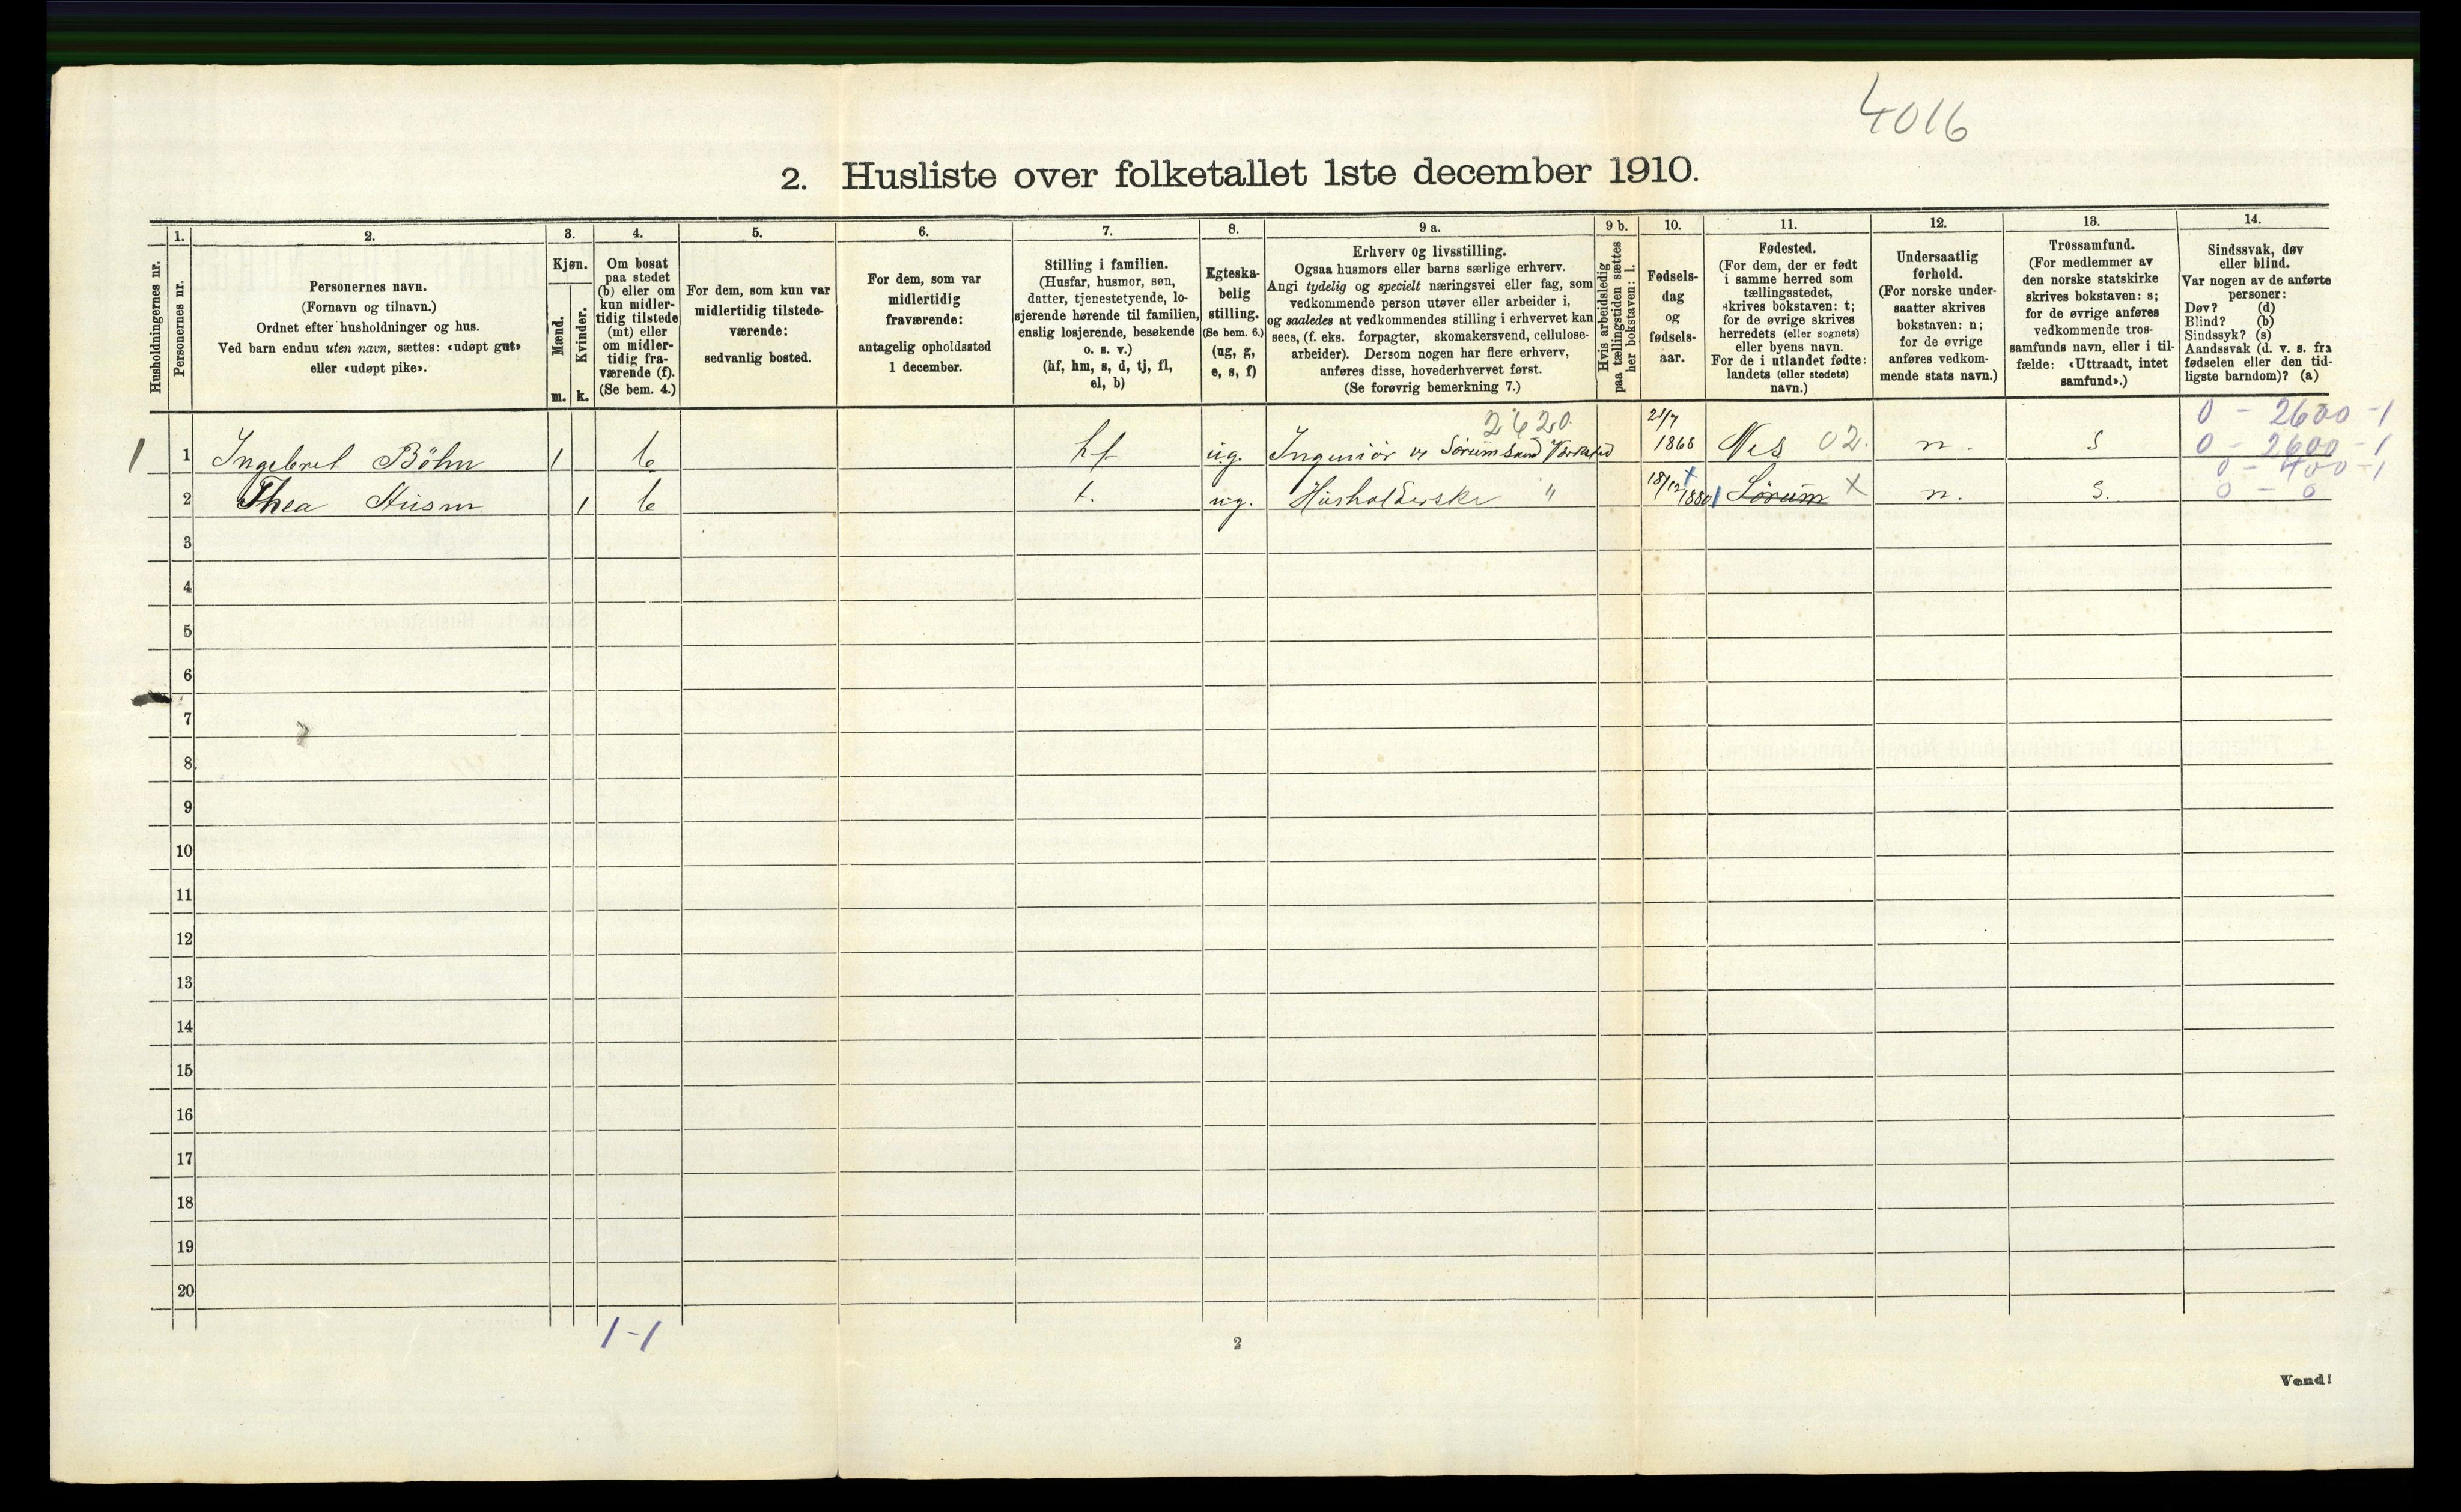 4016
2. Husliste over folketallet 1ste december 1910.
Husholdningernes nr.
1.
Personernes nr.
2.
Personernes navn.
(Fornavn og tilnavn.)
Ordnet efter husholdninger og hus.
Ved barn endnu uten navn, sættes: «udøpt gut»
eller «udøpt pike».
3.
Kjøn.
Mænd.
Kvinder.
m. k.
4.
Om bosat
paa stedet
(b) eller om
kun midler-
tidig tilstede
(mt) eller
om midler-
tidig fra-
værende (f).
(Se bem. 4.)
5.
For dem, som kun var
midlertidig tilstede-
værende:
sedvanlig bosted.
6.
For dem, som var
midlertidig
fraværende:
antagelig opholdssted
1 december.
7.
Stilling i familien.
(Husfar, husmor, søn,
datter, tjenestetyende, lo-
sjerende hørende til familien,
enslig losjerende, besøkende
o. s. v.)
(hf, hm, s, d, tj, fl,
el, b)
8.
Egteska-
belig
stilling.
(Se bem. 6.)
(ug, g,
e, s, f)
9 a.
Erhverv og livsstilling.
Ogsaa husmors eller barns særlige erhverv.
Angi tydelig og specielt næringsvei eller fag, som
vedkommende person utøver eller arbeider i,
og saaledes at vedkommendes stilling i erhvervet kan
sees, (f. eks. forpagter, skomakersvend, cellulose-
arbeider). Dersom nogen har flere erhverv,
anføres disse, hovederhvervet først.
(Se forøvrig bemerkning 7.)
9 b.
Hvis arbeidsledig
paa tællingstiden sættes
her bokstaven: l.
10.
Fødsels-
dag
og
fødsels-
aar.
11.
Fødested.
(For dem, der er født
i samme herred som
tællingsstedet,
skrives bokstaven: t;
for de øvrige skrives
herredets (eller sognets)
eller byens navn.
For de i utlandet fødte:
landets (eller stedets)
navn.)
12.
Undersaatlig
forhold.
(For norske under-
saatter skrives
bokstaven: n;
for de øvrige
anføres vedkom-
mende stats navn.)
13.
Trossamfund.
(For medlemmer av
den norske statskirke
skrives bokstaven: s;
for de øvrige anføres
vedkommende tros-
samfunds navn, eller i til-
fælde: «Uttraadt, intet
samfund».)
14.
Sindssvak, døv
eller blind.
Var nogen av de anførte
personer:
Døv? (d)
Blind? (b)
Sindssyk? (s)
Aandssvak (d. v. s. fra
fødselen eller den tid-
ligste barndom)? (a)
2620. 21/7 0 - 2600 - 1
1 1 Ingebret Böhn 1 b hf ug. Ingeniör ved Sörumsand Værksted 1868 Nes 02. n. S 0 - 2600 - 1
0 - 400 - 1
2 Thea 1 b t. ug. Husholderske " 18/12 1880 Sörum X n. S. 0 - 0
3
4
5
6
7
8
9
10
11
12
13
14
15
16
17
18
19
20
1-1
2
Vend!